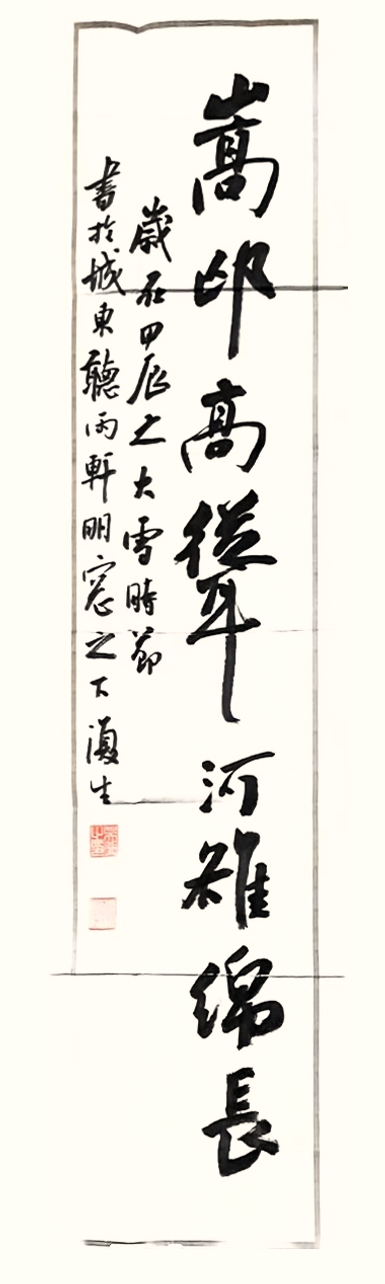 嵩邙高聳河雒綿長
歲在甲辰之大雪時節
書於城東聽雨軒明窓之下生